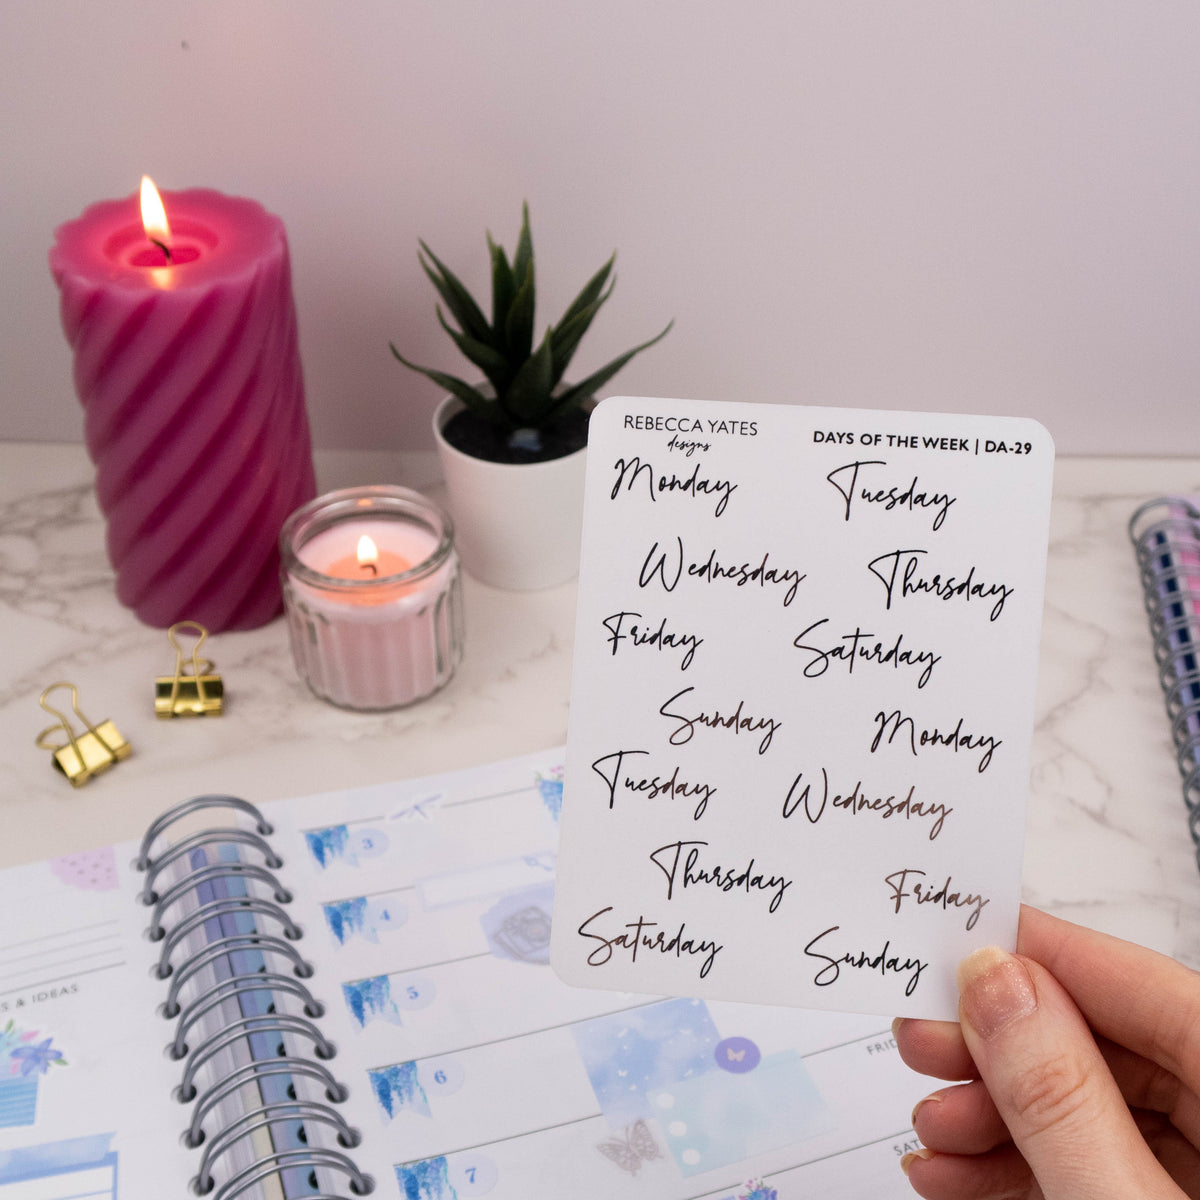 REBECCA YATES
designs
DAYS OF THE WEEK | DA-29
Monday Tuesday
Wednesday Thursday
Friday Saturday
Sunday Monday
Tuesday Wednesday
Thursday Friday
Saturday Sunday
3
4
5
6
7
& IDEAS